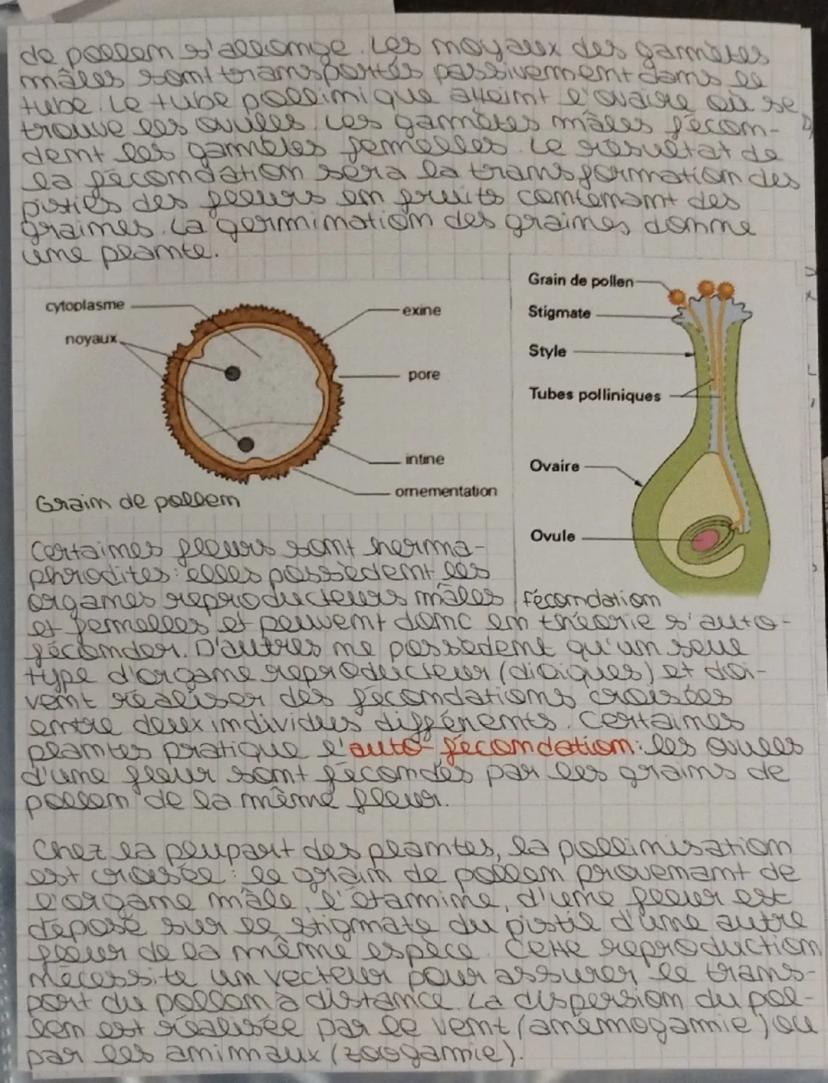 de pollen s'allonge. Les noyaux des gamètes
mâles sont transportés passivement dans le
tube. Le tube pollinique atteint l'ovaire où se
trouve les ovules. Les gamètes mâles fécon-
dent les gamètes femelles. Le résultat de
la fécondation sera la transformation des
pistils des fleurs en fruits contenant des
graines. La germination des graines donne
une plante.
cytoplasme
noyaux
exine
pore
intine
ornementation
Grain de pollen
Grain de pollen
Stigmate
Style
Tubes polliniques
Ovaire
Ovule
fécondation
Certaines fleurs sont herma-
phrodites : elles possèdent les
organes reproducteurs mâles
et femelles et peuvent donc en théorie s'auto-
féconder. D'autres ne possèdent qu'un seul
type d'organe reproducteur (dioïques) et doi-
vent réaliser des fécondations croisées
entre deux individus différents. Certaines
plantes pratique l'auto-fécondation : les ovules
d'une fleur sont fécondés par les grains de
pollen de la même fleur.
Chez la plupart des plantes, la pollinisation
est croisée : le grain de pollen provenant de
l'organe mâle, l'étamine, d'une fleur est
déposé sur le stigmate du pistil d'une autre
fleur de la même espèce. Cette reproduction
nécessite un vecteur pour assurer le trans-
port du pollen à distance. La dispersion du pol-
len est réalisée par le vent (anémogamie) ou
par les animaux (zoogamie).